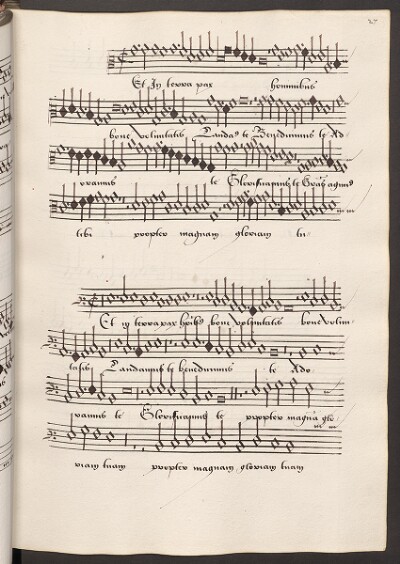 27
Et In terra pax hominibus
bone voluntatis Laudas te Benedicimus te Ad
oramus te Glorificamus te Gras agimus
tibi propter magnam gloriam tu
Et in terra pax hoibus bone voluntatis bone volun
tatis Laudamus te benedicimus te Ado
ramus te Glorificamus te propter magna glo
riam tuam propter magnam gloriam tuam